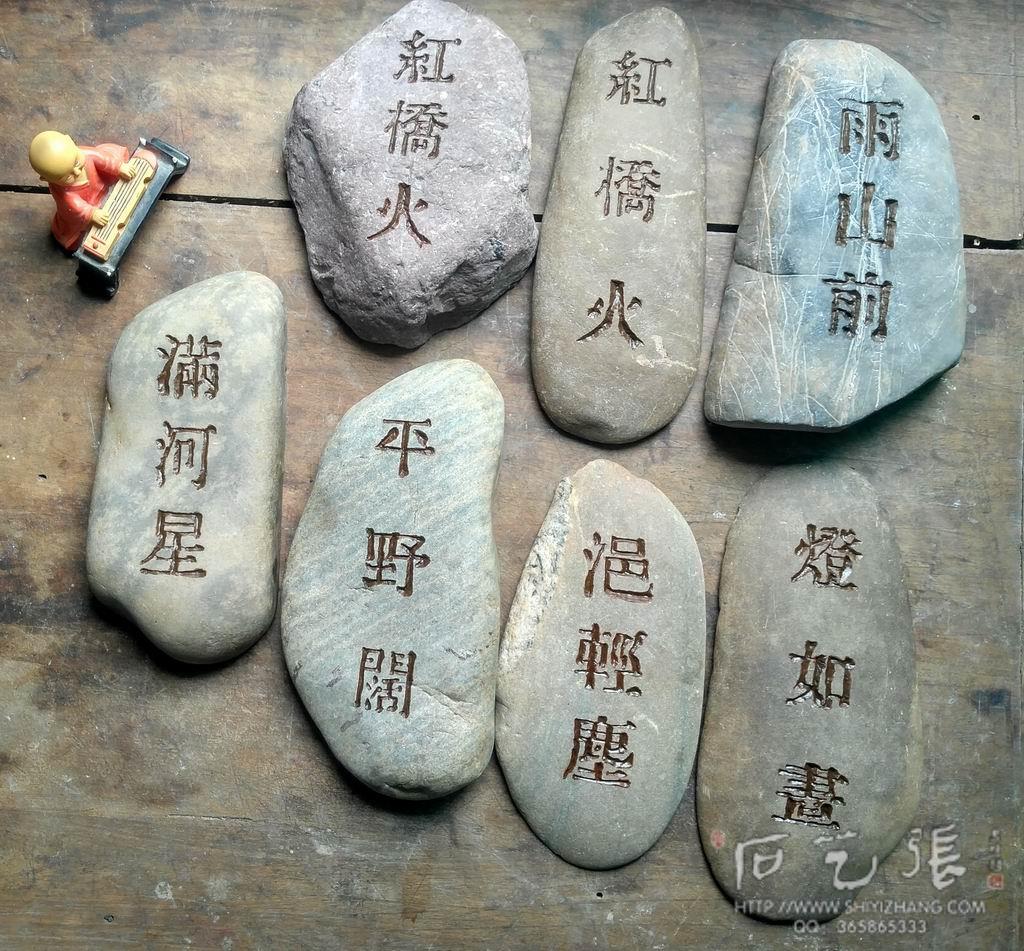 紅橋火
紅橋火
雨山前
滿河星
平野闊
浥輕塵
燈如晝
石艺張
HTTP://WWW.SHIYIZHANG.COM
QQ: 365865333